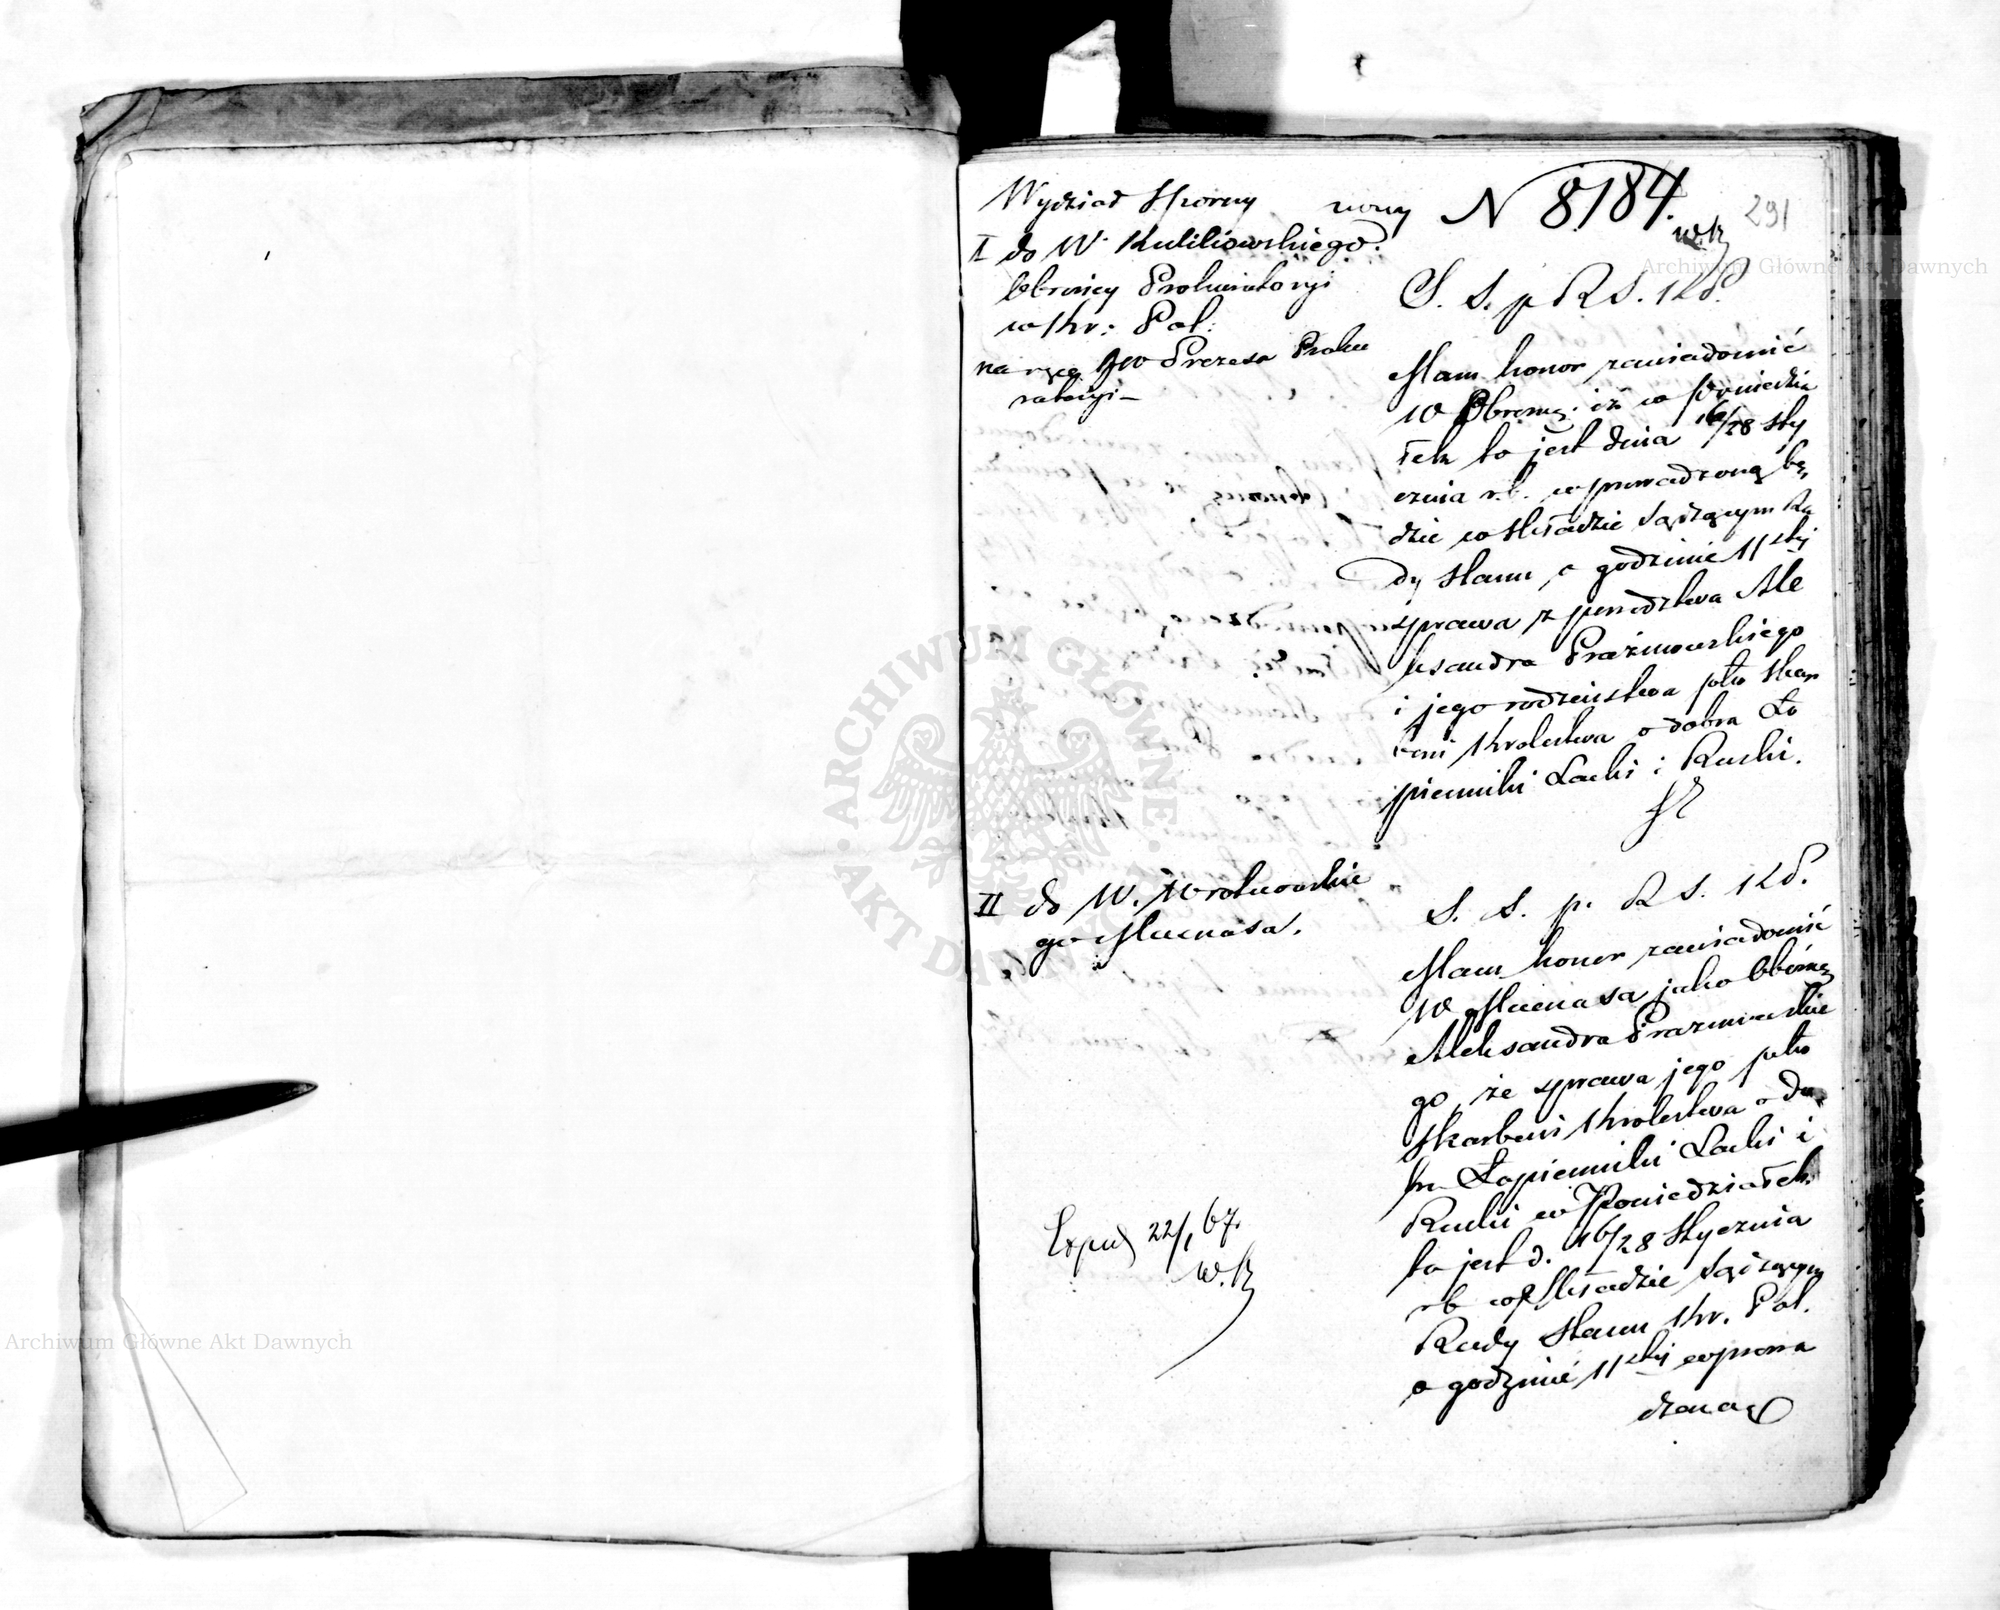 Wydział Sporny nowy N 8184.
291
I do W. Kulikowskiego.
Obrońcy Prokuratoryi
w Kr: Pol:
na ręce JW Prezesa Proku
ratoryi –
S. S. p R S. K P.
Mam honor zawiadomić
W Obrońcę iż w Poniedzia
łek to jest dnia 16/28 Sty
cznia r.b. wprowadzoną bę
dzie w Składzie Sądzącym Ra
dy Stanu o godzinie 11stej
sprawa z powództwa Ale
ksandra Prażmowskiego
i jego rodzeństwa płko Skar
bowi Królestwa o dobra Ło
pienniki Lacki i Ruski.
II do W. Wrotnowskie
go Mecenasa.
S. S. p. R S. K P.
Mam honor zawiadomić
W Mecenasa jako Obrońcę
Aleksandra Prazmowskie
go, że sprawa jego płko
Skarbowi Królestwa o do
bra Łopienniki Lacki i
Ruski w Poniedziałek
to jest d. 16/28 Stycznia
rb w Składzie Sądzącym
Rady Stanu Kr. Pol.
o godzinie 11stej wprowa
dzoną
22/1 67.
W. K
Archiwum Główne Akt Dawnych
Archiwum Główne Akt Dawnych
ARCHIWUM GŁÓWNE AKT DAWNYCH